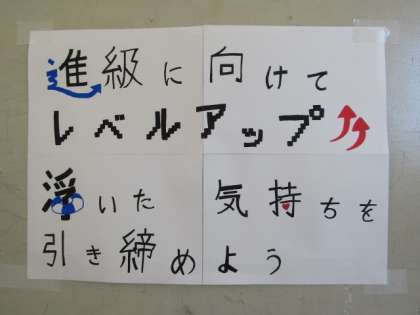 進級に向けて
レベルアップ
浮いた気持ちを
引き締めよう